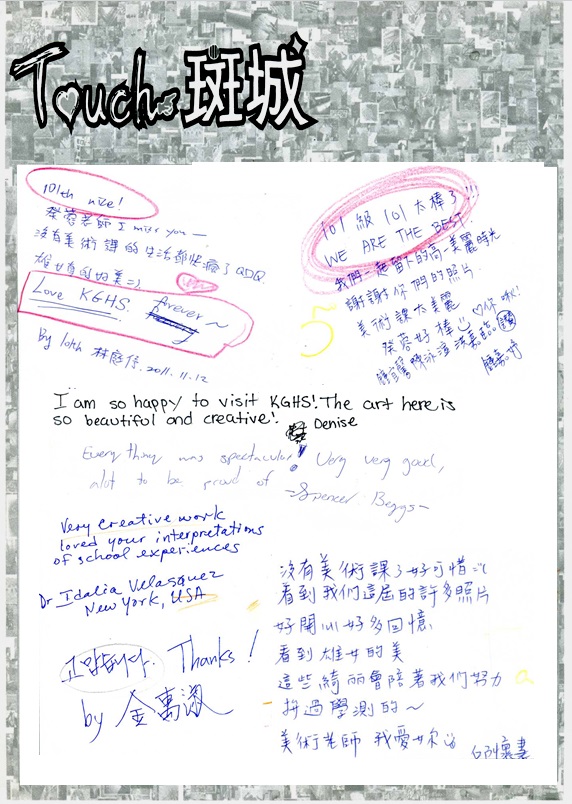 Touch 斑城
101th nice!
蔡蓉老師 I miss you —
沒有美術課的生活都快瘋了 QDQ
雄女有你的美
Love KGHS. forever~
By 101th 林庭 2011.11.12
101 級 101 太棒了!!!
WE ARE THE BEST
我們一起留下的高一美麗時光
謝謝你們的照片
美術課太美麗
蔡蓉好棒 ♡你啾!
5
I am so happy to visit KGHS! The art here is
so beautiful and creative! Denise
Everything was spectacular! Very very good,
alot to be proud of -Spencer Beggs-
Very creative work
loved your interpretations
of school experiences
Dr Idalia Velasquez
New York, USA
고맙습니다. Thanks!
by 金萬淑
沒有美術課了好可惜
看到我們這屆的許多照片
好開心好多回憶
看到雄女的美
這些綺麗會陪著我們努力
拚過學測的~
美術老師 我愛妳